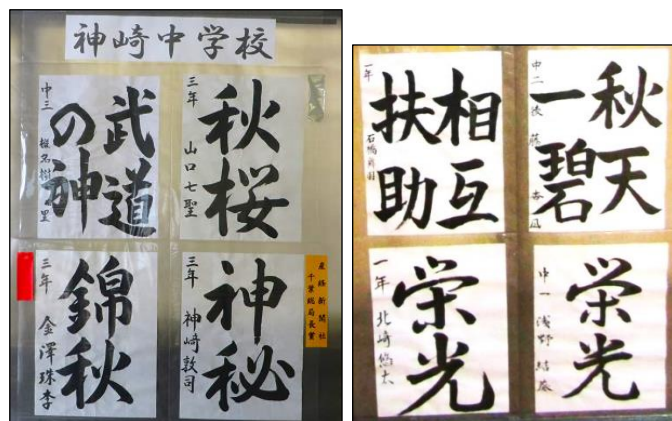 神崎中学校
秋桜
三年 山口七聖
武道の神
中三
神秘
三年 神崎敦司
産経新聞社
千葉総局長賞
錦秋
三年 金澤珠李
秋天一碧
中二
相互扶助
一年
栄光
中一 浅野
栄光
一年 北崎悠太